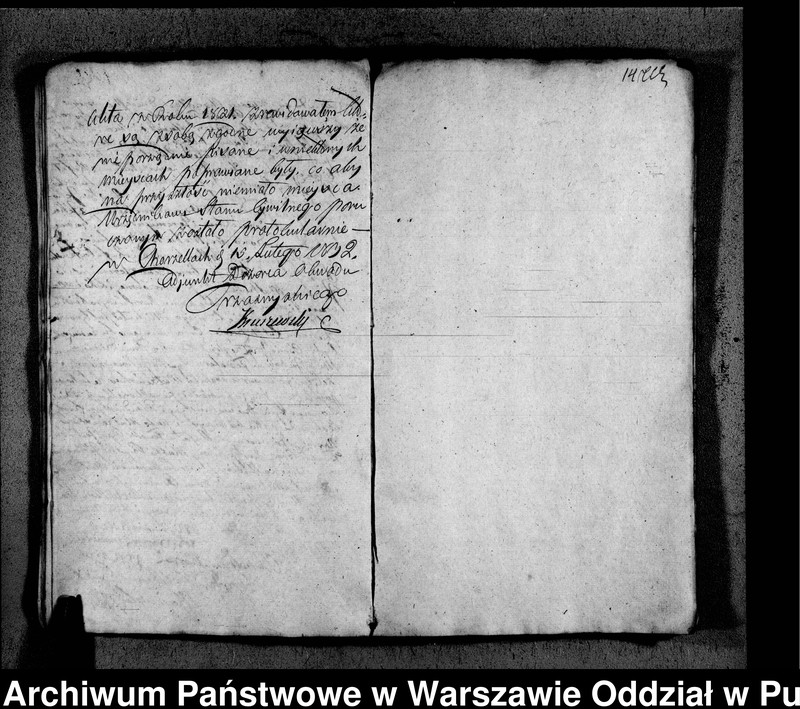 Akta z Roku 1821. zrewidowałem któ-
re są z sobą zgodne wyiąwszy że
nie porządnie pisane i w niektórych
mieyscach poprawiane były, co aby
na przyszłość niemiało mieysca
Urzędnikowi Stanu Cywilnego poru
czonym zostało protokularnie —
w Chorzellach d. Lutego 1832.
Adjunkt Dozorca Obwodu
Przasnyskiego
14
Archiwum Państwowe w Warszawie Oddział w Pu